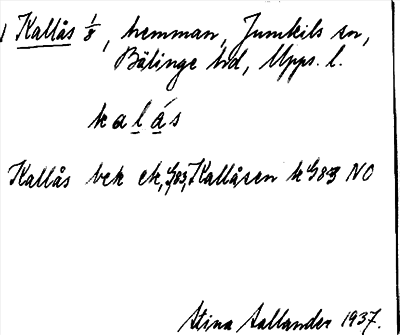 Kallås 1/8, hemman, Jumkils sn,
Bälinge hd, Upps. l.
kalás
Kallås bek ek, G83, Kallåsen k G83 NO
Stina Sallander 1937.